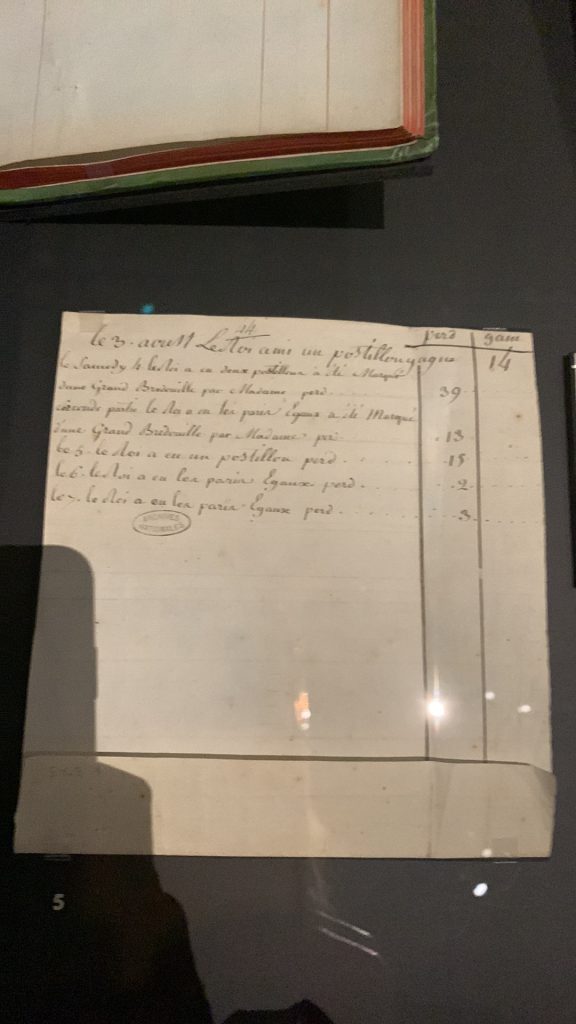 perd gain
44
le 3. avrill Le Roi a mis un postillon gagne 14
le Samedy 4 le Roi a eu deux postillons a été Marqué
d'une Grand Bredouille par Madame perd 39
seconde partie le Roi a eu les paris Egaux a été Marqué
d'une Grand Bredouille par Madame per 13
le 5. le Roi a eu un postillon perd 15
le 6. le Roi a eu les paris Egaux perd 2
le 7. le Roi a eu les paris Egaux perd 3
ARCHIVES
NATIONALES
5